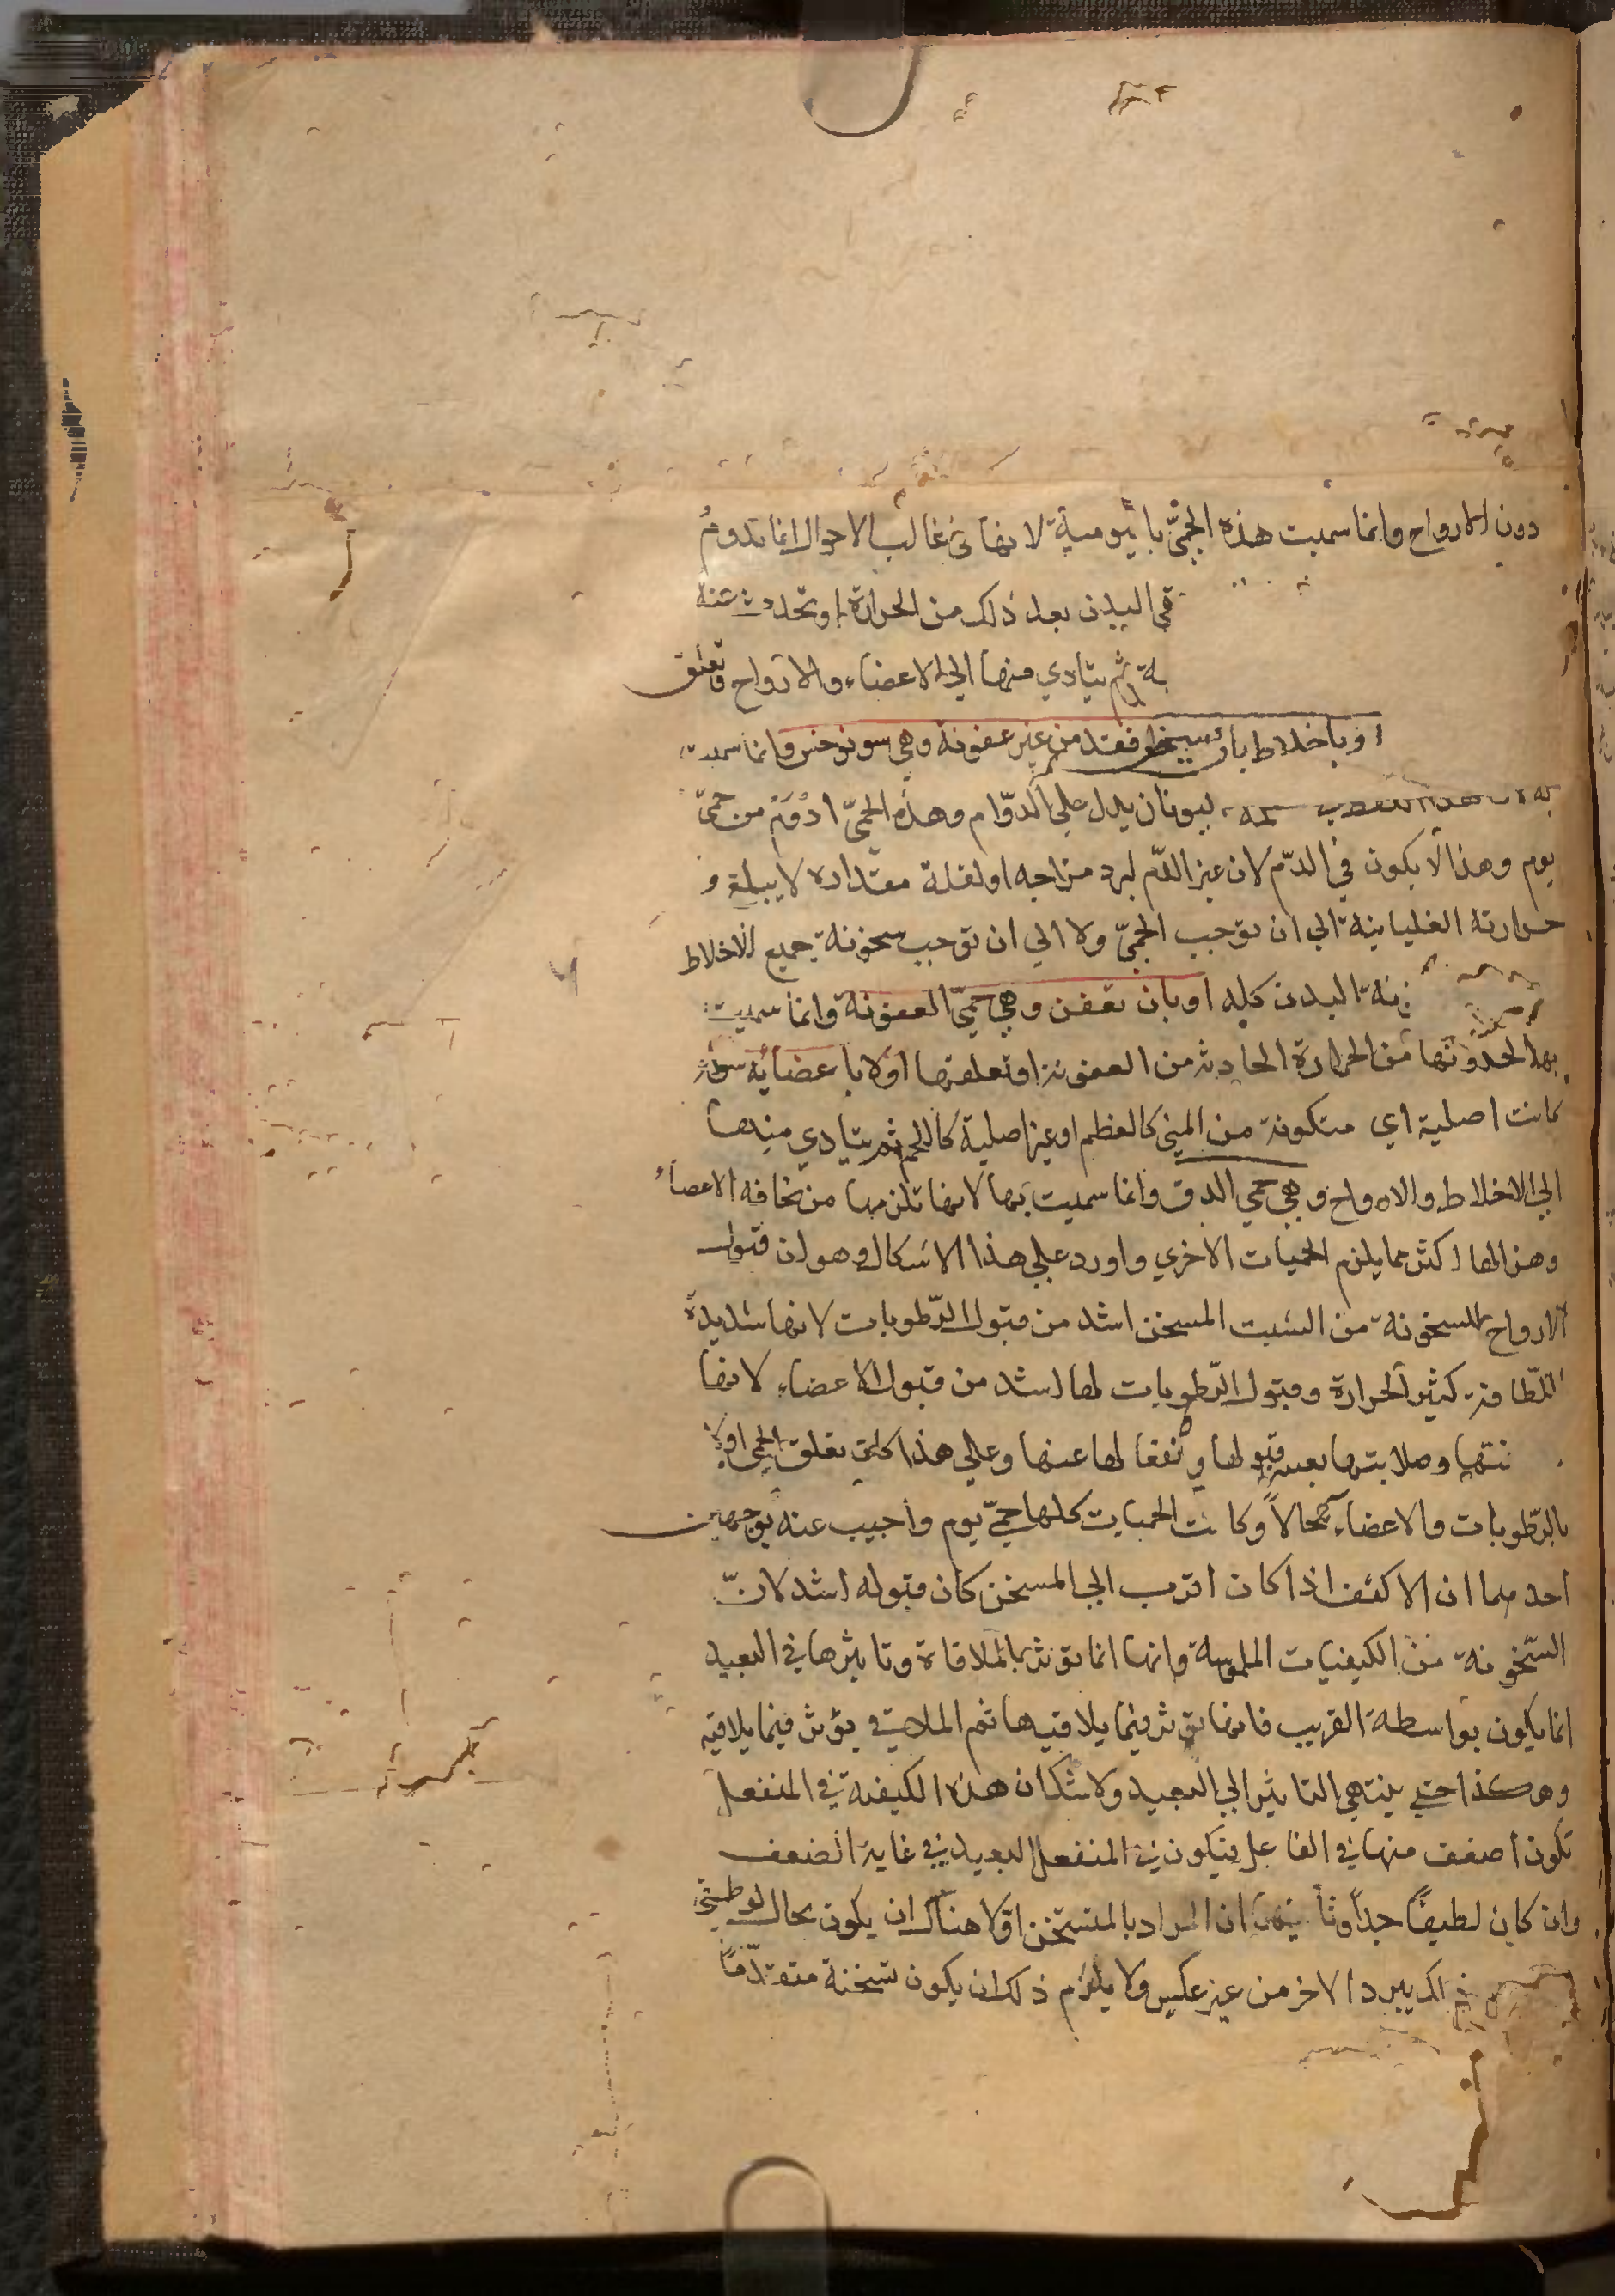 دون الارواح وانما سميت هذه الحمىّ باليومية لانها في غالب الاحوال انما تدومُ
في البدن بعد ذلك من الحرارة او تحدث عنه
ثم يتادي منها الي الاعضاء والارواح
او باخلاط بان فقد من غير عفونة وهي سونوخس وانما سميت
ليونان يدل علي الدوّام وهذه الحمىّ ادْوَمْ من حمىّ
يوم وهذا لا يكون في الدّم لان غير الدّم لبرد مزاجه او لقلة مقداره لا يبلغ و
حرارته الغليانية الي ان توجب الحمىّ ولا الي ان توجب سخونة جميع الاخلاط
البدن كله او بان تعفن وهي حمىّ العفونة وانما سميت
بها لحدوثها من الحرارة الحادثه من العفونة او تعلقها اولا باعضائه سواء
كانت اصلية اي متكونة من المني كالعظم او غير اصلية كاللحم ثم يتادي منها
الي الاخلاط والارواح وهي حمي الدق وانما سميت بها لانها تلزمها من نحافه الاعضاء
وهزالها اكثر مما يلزم الحميات الاخري واورد علي هذا الاشكال وهو ان قبول
الارواح للسخونة من السبب المسخن اشد من قبول الرّطوبات لانها شديدة
اللّطافة كثير الحرارة وقبول الرّطوبات لها اشد من قبول الاعضاء لانها
وصلابتها يعسر قبولها و لها عنها وعلي هذا تعلق الحمي اولا
بالرّطوبات والاعضاء محالاً وكانت الحميات كلها حمىّ يوم واجيب عنه بوجهين
احدهما ان الاكثف اذا كان اقرب الي المسخن كان قبوله اشد لانّ
السّخونة من الكيفيات الملموسة وانها انما توثر بالملاقاة وتاثيرها في البعيد
انما يكون بواسطة القريب فانها توثر فيما يلاقيها ثم الملاقي يؤثر فيما يلاقيه
وهكذا حتي ينتهي التاثير الي البعيد ولا شك ان هذه الكيفية في المنفعل
تكون اضعف منها في الفاعل فيكون في المنفعل البعيد في غاية الضعف
وان كان لطيفاً جداً وثانيهما ان المراد بالمتسخن اولا هناك ان يكون بحال لو
يبرد الاخر من غير عكس ولا يلزم ذلك ان يكون تسخنة متقدّماً